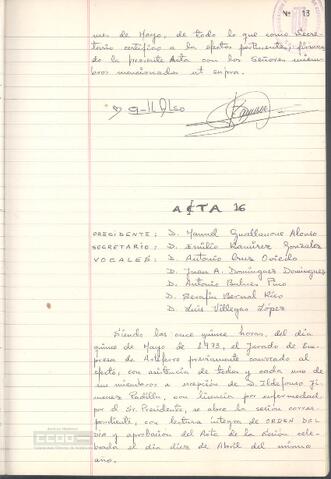 Nº 13
mes de Mayo, de todo lo que como Secre-
tario certifico a los efectos pertinentes, firman-
do la presente Acta con los Señores miem-
bros mencionados ut supra.
ACTA 16
PRESIDENTE: D. Manuel Guallanone Alonso
SECRETARIO: D. Emilio Ramírez González
VOCALES: D. Antonio Cruz Oviedo
D. Juan A. Domínguez Domínguez
D. Antonio Bulnes Pino
D. Serafín Bernal Rico
D. Luis Villegas López
Siendo las once quince horas, del día
quince de Mayo de 1973, el Jurado de Em-
presa de Astifero previamente convocado al
efecto, con asistencia de todos y cada uno de
sus miembros a excepción de D. Ildefonso Ji-
menez Padilla, con licencia por enfermedad,
por el Sr. Presidente, se abre la sesión corres-
pondiente, con lectura íntegra de ORDEN DEL
DIA y aprobación del Acta de la sesión cele-
brada el día diez de Abril del mismo
año.
CCOO